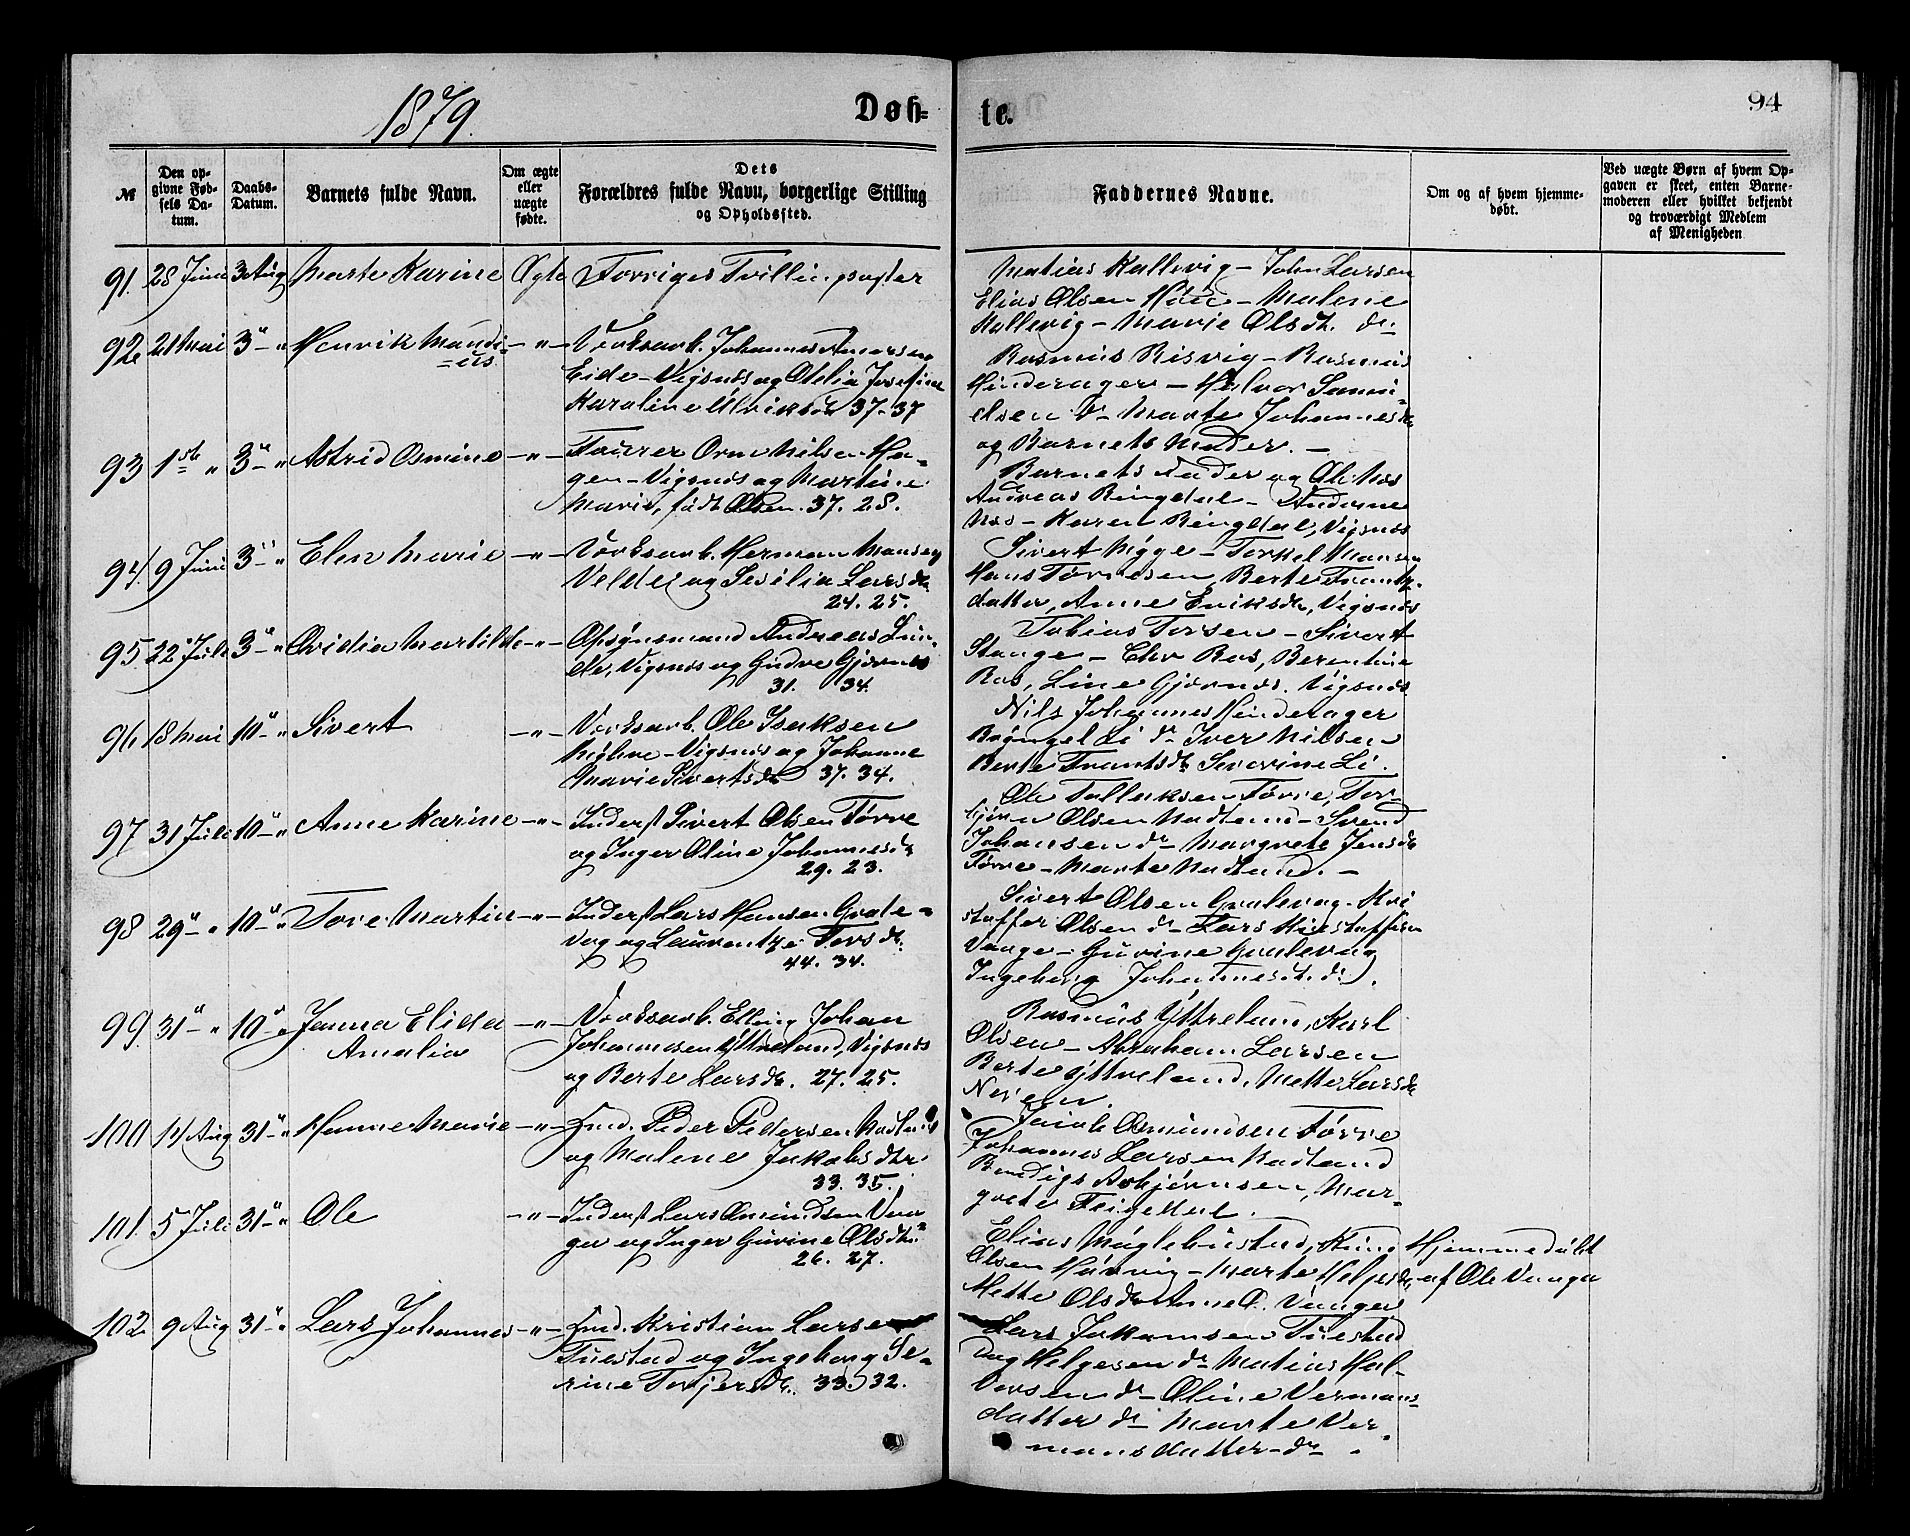 1879.
Døb=
te.
94
№
Den op-
givne Fød-
sels Da-
tum.
Daabs-
Datum.
Barnets fulde Navn.
Om ægte
eller
uægte
fødte.
Dets
Forældres fulde Navn, borgerlige Stilling
og Opholdssted.
Faddernes Navne.
Om og af hvem hjemme-
døbt.
Ved uægte Børn af hvem Op-
gaven er skeet, enten Barne-
moderen eller hvilket bekjendt
og troværdigt Medlem
af Menigheden
91. 28 Juni 3 Aug Marte Karine Ægte Forriges Tvillingsøster
Matias Kallevig - John Larsen
Elias Olsen - Malene
Kallevig - Marie Olsdt. do.
92. 21 Mai 3 " - " Henrik Mandi-
=us - " - Verksarb. Johannes Amorsen
Eide - Vigsnes og Otelia Josefine
Karoline Ulriksd. 37-37
Rasmus Risvig - Rasmus
Hinderager - Halvor Samu-
elsen do Marte Johannesdr
og Barnets Moder. -
93 1ste " 3 " - " Astrid Osmine - " - Fourer Orm Nilsen Ha-
gen - Vigsnes og Martine
Marie, født Olsen. 37. 28.
Barnets Fader og Ole Næs
Andreas Ringedal - Anderine
Næs - Karen Ringedal, Vigsnes
94 9 Juni 3 " - " Elen Marie - " - Verksarb. Herman Monsen
Velde og Sesilia Larsdr
24. 25.
Sivert Nygge - Torkel Monsen
Hans Tørresen, Berte Frants-
datter, Anne Eriksdr, Vigsnes
95 22 Juli 3 " - " Ovidia Martilde - " - Opsynsmand Andreas Lun-
de, Vigsnes og Gudve Gjernes
31. 34.
Tobias Torsen - Sivert
Stange - Chr Ros, Berentine
Ros, Line Gjernes. Vigsnes
96 18 Mai 10 " - " Sivert - " - Verksarb. Ole Isaksen
- Vigsnes og Johanne
Marie Sivertsdr 37. 34.
Nils Johannes Hinderager
Brynjel Li do Iver Nilsen
Berte Frantsdr Severine Li.
97 31 Juli 10 " - " Anne Karine - " - Inderst Sivert Olsen Tørve
og Inger Oline Johannesdr
29. 23.
Ole Tolleksen Tørve, Tor-
bjørn Olsen Nadland - Svend
Johansen do Margrete Jensdr
Tørve - Marte Nadland. -
98 29 " - " 10 " - " Tore Martin - " - Inderst Lars Hansen Grøle-
vag og Laurentze Torsdr.
44. 34.
Sivert Olsen Grølevag - Kri
stoffer Olsen do Lars Kristoffersen
Vaage - Gurine Grølevag
Ingeborg Johannesdt. do.
99. 31 " - " 10 " - " Janna Elida
Amalia - " - Verksarb. Elling Johan
Johannesen Yttreland, Vigsnes
og Berte Larsdr. 27. 25.
Rasmus Yttreland, Karl
Olsen - Abraham Larsen
Berte Yttreland, Mette Larsdr
100 14 Aug 31 " - " Hanne Marie - " - Gmd. Peder Pedersen Nadland
og Malene Jakobsdtr.
33. 35.
Jacob Osmundsen Tørve
Johannes Larsen Nadland
Bendigs Asbjørnsen, Mar-
grete Feigedal. -
101. 5 Juli 31 " - " Ole - " - Inderst Lars Osmundsen Vaa-
ge og Inger Gurine Olsdtr.
26. 27.
Elias Møglebustad, Knud
Olsen Høvvig - Marte Helgesdr
Mette Olsdr Anne O. Vaage
Hjemmedøbt
af Ole Vaage
102. 9 Aug 31 " - " Lars Johannes - " - Gmd. Kristian Larsen
Tuestad og Ingeborg Se-
rine Torjersdr. 33. 32.
Lars Jokamsen Tuestad
Dag Helgesen do Matias Hal-
vorsen do - Oline Vermans-
datter do Marte Ver-
mansdatter - do